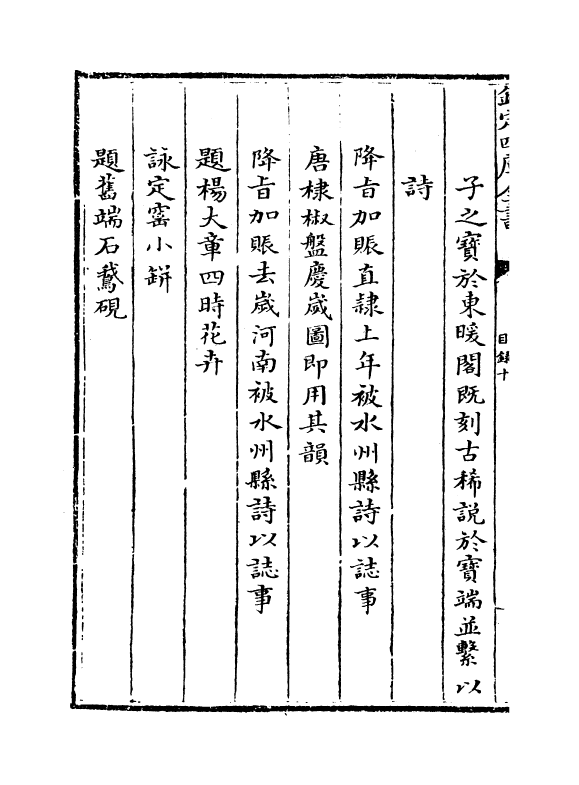 欽定四庫全書
目錄十
子之寳於東暖閣既刻古稀説於寳端並繫以
詩
降旨加賑直隷上年被水州縣詩以誌事
唐棣椒盤慶歲圖即用其韻
降旨加賑去歲河南被水州縣詩以誌事
題楊大章四時花卉
詠定窑小缾
題舊端石鵞硯